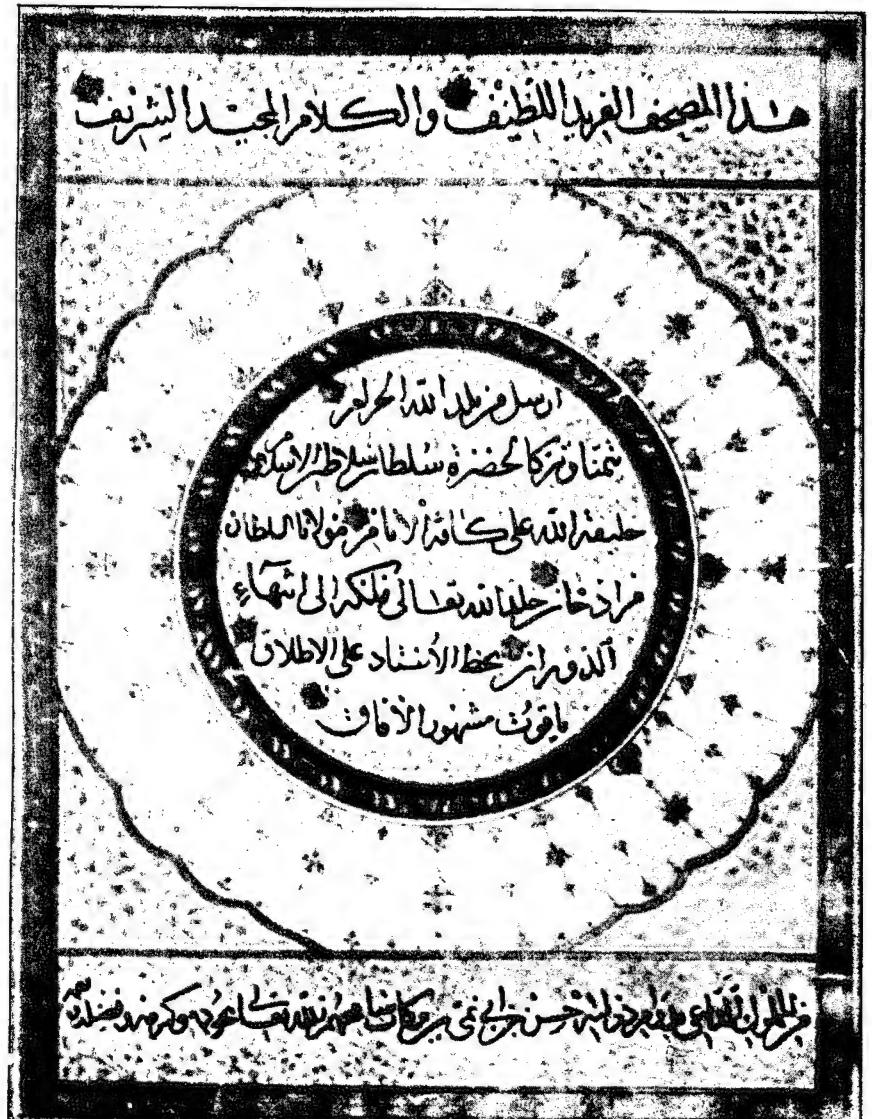 هذا المصحف الفريد اللطيف والكلام المجيد الشريف
ارسل من بلد الله الحرام
تيمنا وتبركا لحضرة سلطان سلاطين الاسلام
خليفة الله على كافة الانام مولانا السلطان
مراد خان خلد الله تعالى ملكه الى انتهاء
الدوران بخط الأستاد على الاطلاق
ياقوت مشهور الآفاق
من المملوك الداعي دولته حسن بن ابي نمي بن بركات الله تعالى بجوده وكرمه